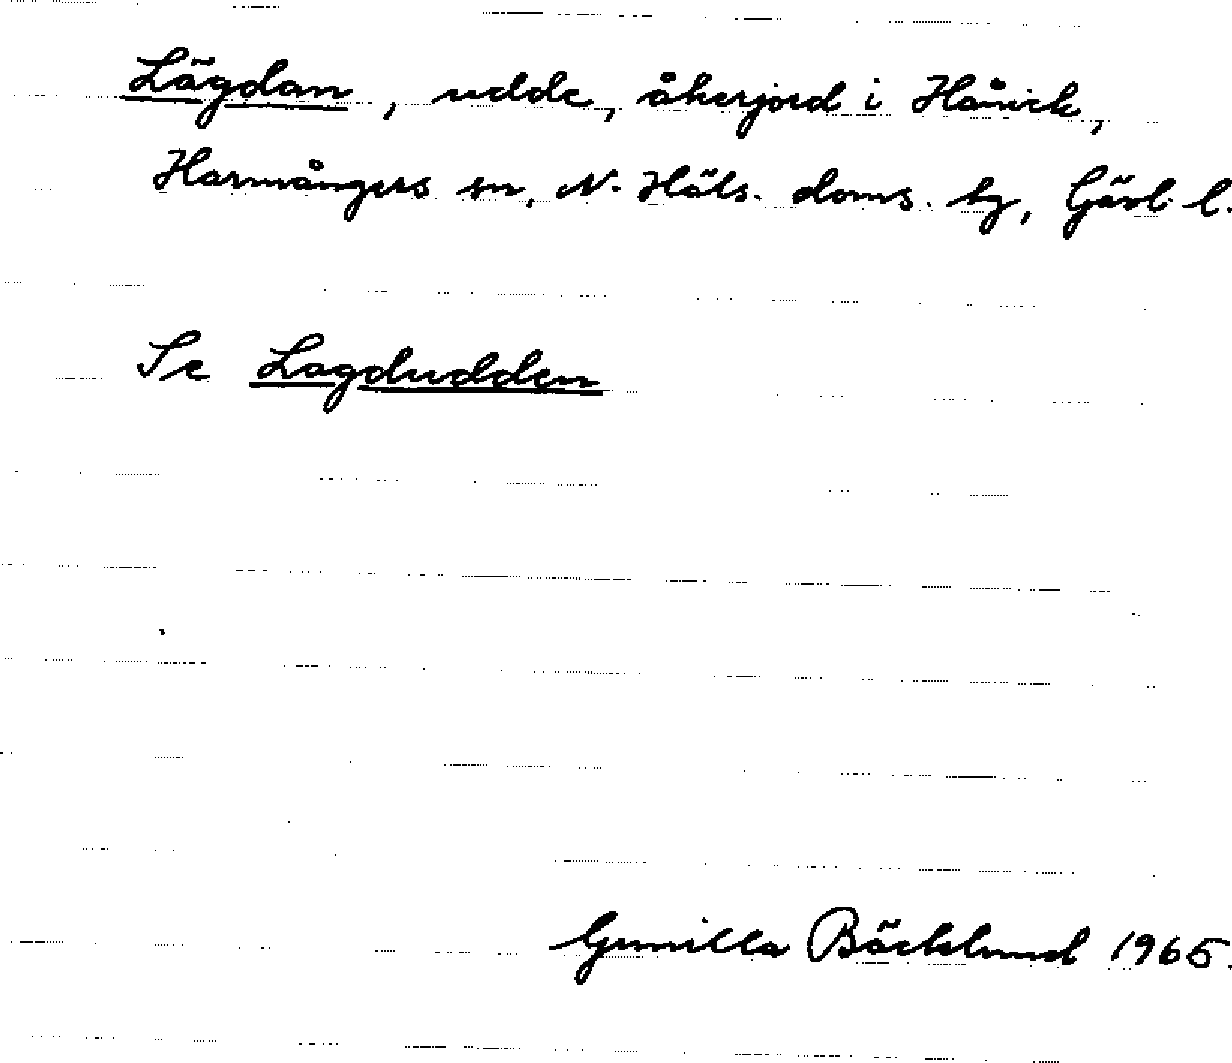 Lägdan, udde, åkerjord i Hånick,
Harmångers sn, N. Häls. doms. hg, Gävl. l.
Se Lagdudden
Gunilla Bäcklund 1965.